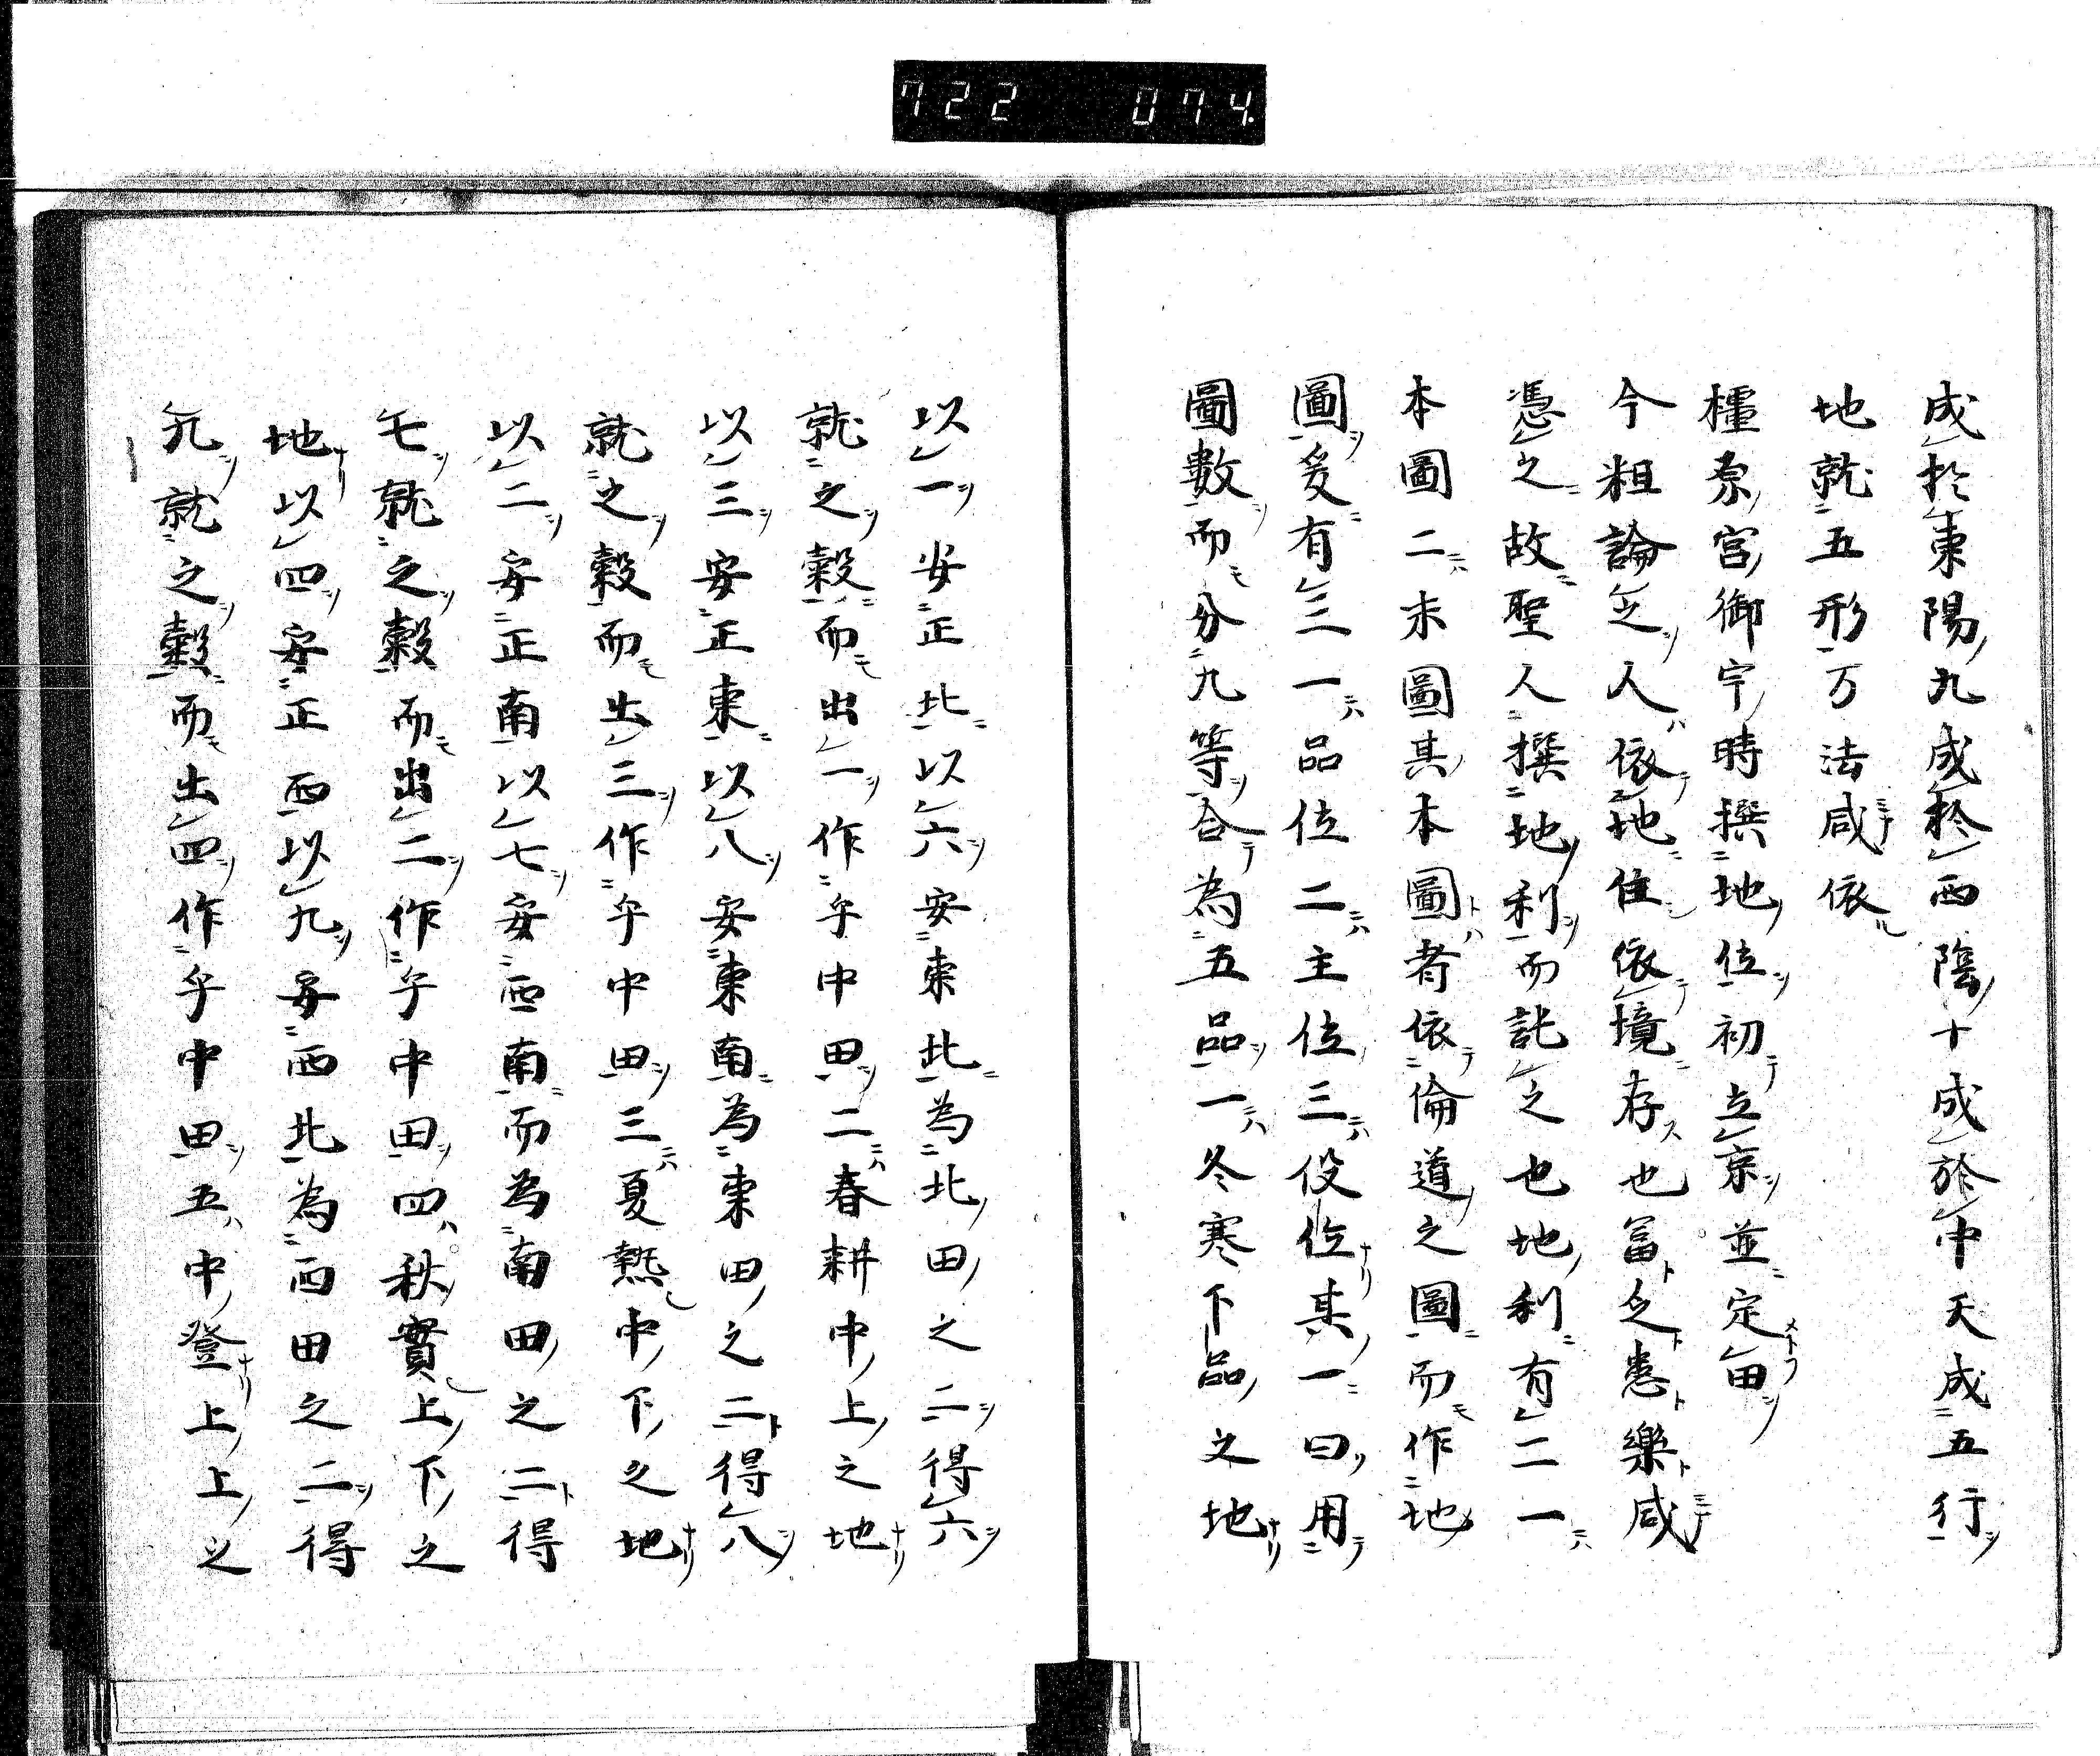 722 074.
成於東陽九成於西陰十成於中天成五行
地就五形万法咸依
橿原宮御宇時撰地位初立京並定田
今粗論之人依地住依境存也富乏患樂咸
憑之故聖人撰地利而託之也地利有二一
本圖二末圖其本圖者依倫道之圖而作地
圖爰有三一品位二主位三役位其一曰用
圖數而分九等合為五品一冬寒下品之地
以一安正北以六安東北為北田之二得六
就之穀而出一作乎中田二春耕中上之地
以三安正東以八安東南為東田之二得八
就之穀而出三作乎中田三夏熱中下之地
以二安正南以七安西南而為南田之二得
七就之穀而出二作乎中田四秋實上下之
地以四安正西以九安西北為西田之二得
九就之穀而出四作乎中田五中登上上之